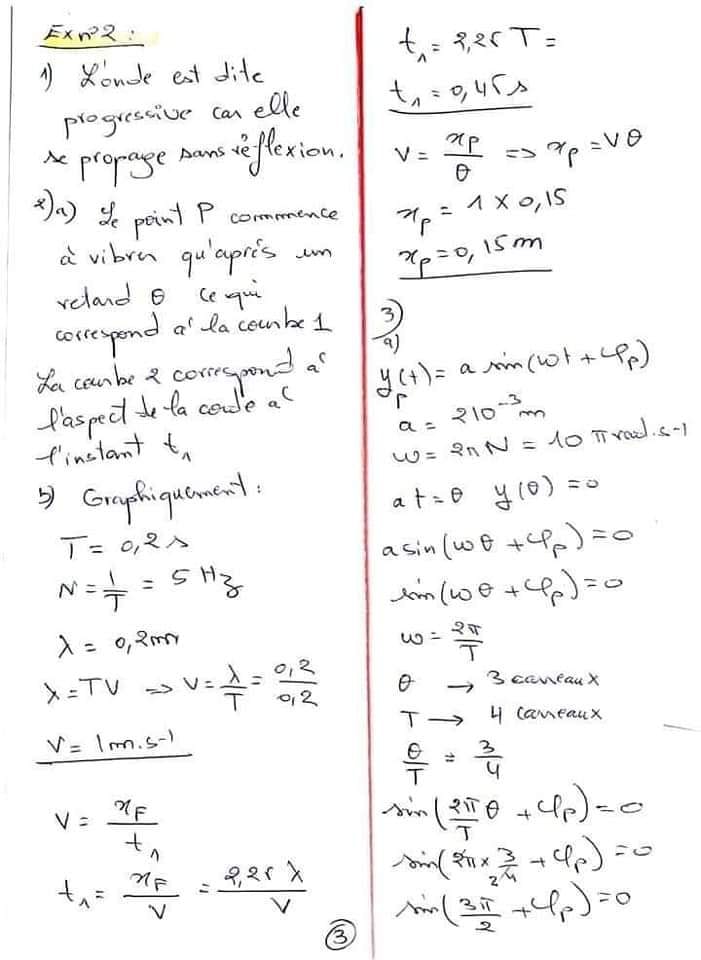 Ex n°2 :
1) L'onde est dite
progressive car elle
se propage sans réflexion.
2)a) Le point P commence
à vibrer qu'après un
retard θ ce qui
correspond à la courbe 1
La courbe 2 correspond à
l'aspect de la corde à
l'instant t₁
b) Graphiquement :
T = 0,2 s
N = 1/T = 5 Hz
λ = 0,2 m
λ = TV => V = λ/T = 0,2/0,2
V = 1 m.s-1
V = xF/t₁
t₁ = xF/V = 2,25 λ/V
3
t₁ = 2,25 T =
t₁ = 0,45 s
V = xp/θ => xp = Vθ
xp = 1 x 0,15
xp = 0,15 m
3)
a)
yp(t) = a sin(ωt + φp)
a = 2 10⁻³ m
ω = 2πN = 10 π rad.s-1
a t = θ y(θ) = 0
a sin(ωθ + φp) = 0
sin(ωθ + φp) = 0
ω = 2π/T
θ → 3 carreaux
T → 4 carreaux
θ/T = 3/4
sin(2π/T θ + φp) = 0
sin(2π x 3/4 + φp) = 0
sin(3π/2 + φp) = 0